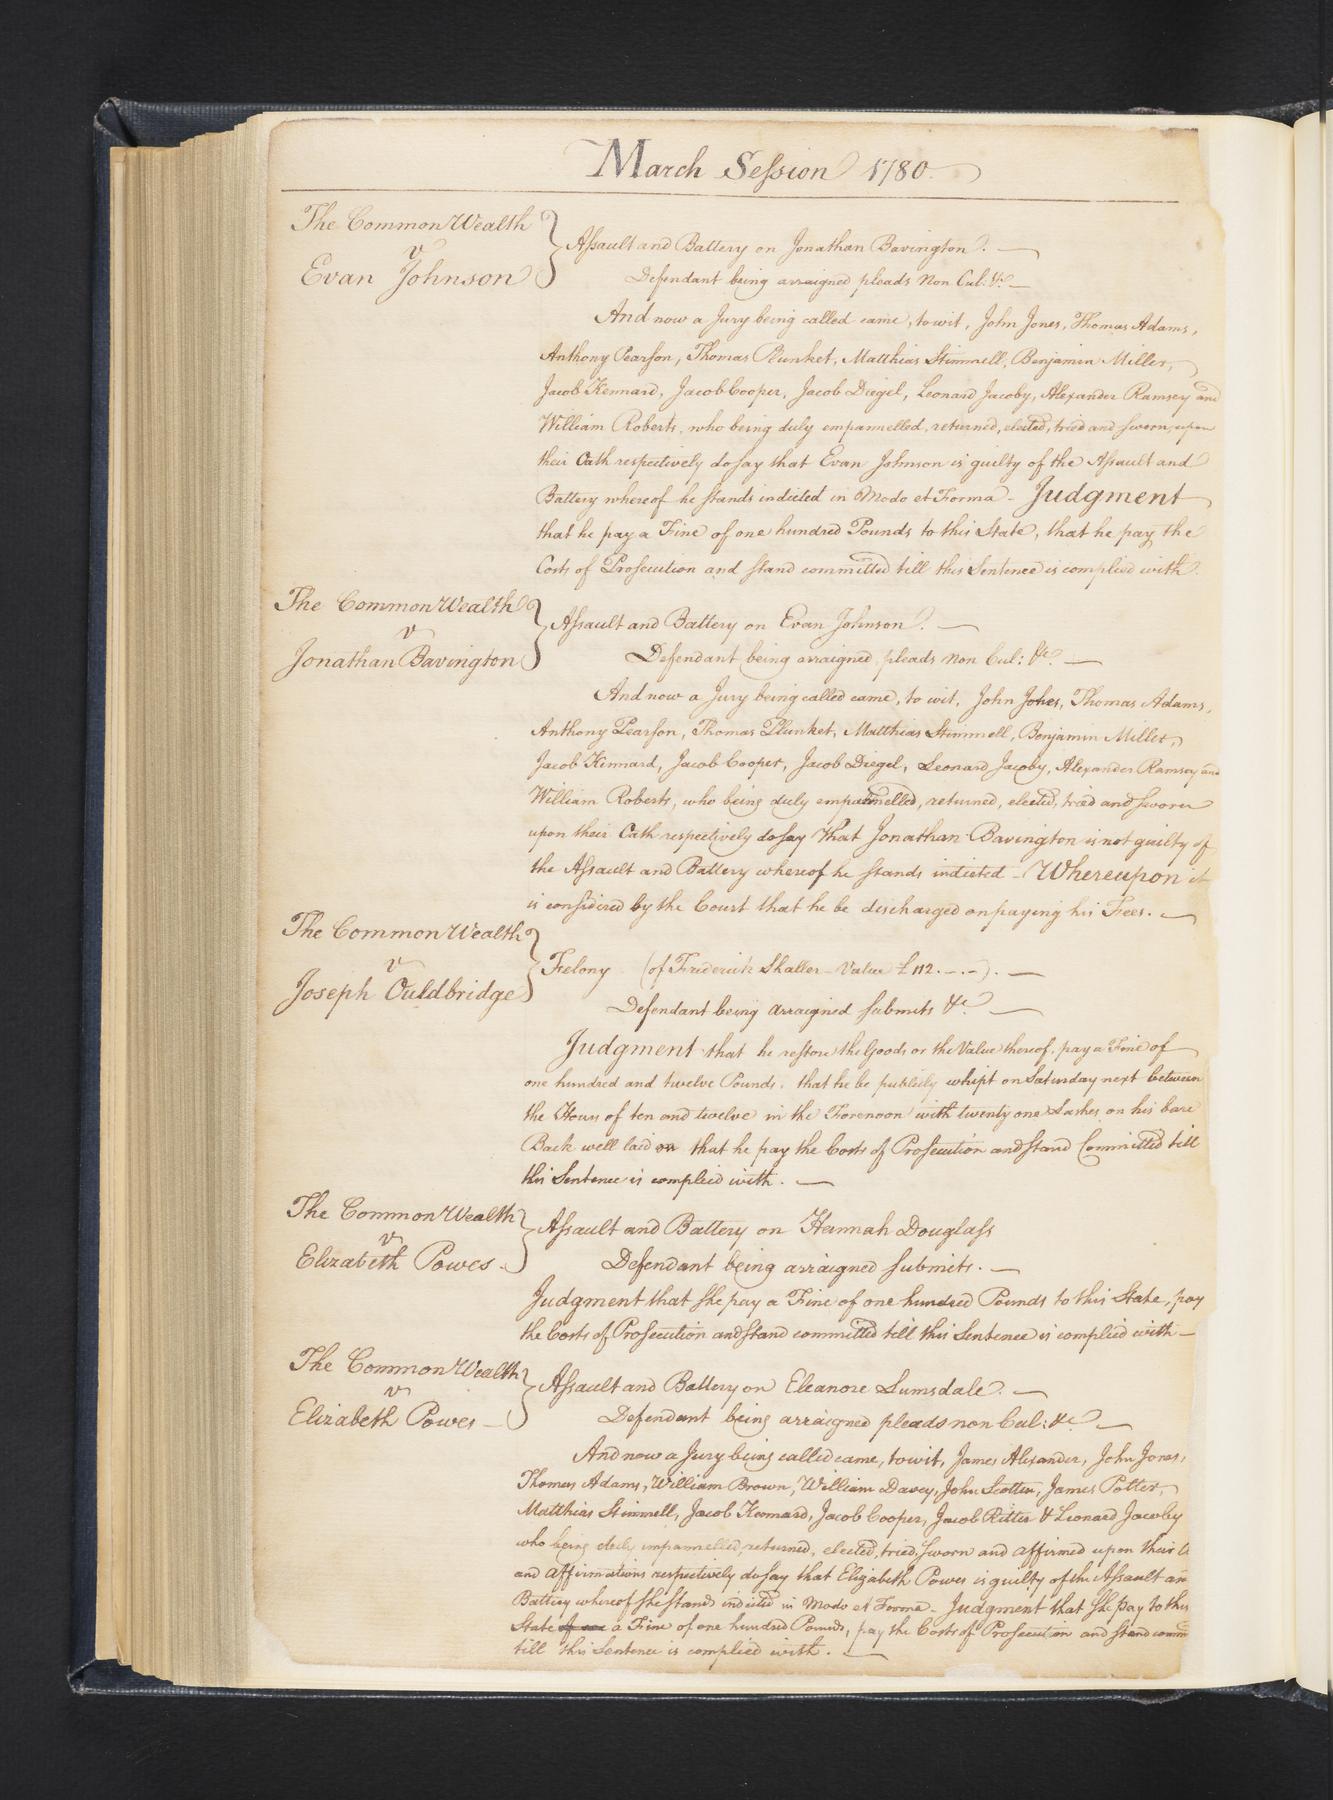 March Session 1780.
The CommonWealth
v
Evan Johnson
Assault and Battery on Jonathan Bavington. —
Defendant being arraigned pleads Non Cul: &c —
And now a Jury being called came, to wit, John Jones, Thomas Adams,
Anthony Pearson, Thomas Plunket, Matthias Stimmell, Benjamin Miller,
Jacob Kennard, Jacob Cooper, Jacob Diegel, Leonard Jacoby, Alexander Ramsey and
William Roberts, who being duly empannelled, returned, elected, tried and sworn, upon
their Oath respectively do say that Evan Johnson is guilty of the Assault and
Battery whereof he stands indicted in Modo et Forma - Judgment
that he pay a Fine of one hundred Pounds to this State, that he pay the
Costs of Prosecution and stand committed till this Sentence is complied with.
The CommonWealth
v
Jonathan Bavington
Assault and Battery on Evan Johnson. —
Defendant being arraigned pleads Non Cul: &c —
And now a Jury being called came, to wit, John Jones, Thomas Adams,
Anthony Pearson, Thomas Plunket, Matthias Stimmell, Benjamin Miller,
Jacob Kennard, Jacob Cooper, Jacob Diegel, Leonard Jacoby, Alexander Ramsey and
William Roberts, who being duly empannelled, returned, elected, tried and sworn
upon their Oath respectively do say that Jonathan Bavington is not guilty of
the Assault and Battery whereof he stands indicted - Whereupon it
is considered by the Court that he be discharged on paying his Fees. —
The CommonWealth
v
Joseph Ouldbridge
Felony (of Frederick Shaller - Value £112.-.-). —
Defendant being arraigned submits &c —
Judgment that he restore the Goods or the Value thereof, pay a Fine of
one hundred and twelve Pounds, that he be publicly whipt on Saturday next between
the Hours of ten and twelve in the Forenoon with twenty one Lashes on his bare
Back well laid on that he pay the Costs of Prosecution and stand Committed till
this Sentence is complied with. —
The CommonWealth
v
Elizabeth Powes -
Assault and Battery on Hannah Douglass
Defendant being arraigned submits. —
Judgment that she pay a Fine of one hundred Pounds to this State, pay
the Costs of Prosecution and stand committed till this Sentence is complied with —
The CommonWealth
v
Elizabeth Powes —
Assault and Battery on Eleanore Lumsdale. —
Defendant being arraigned pleads non Cul: &c —
And now a Jury being called came, to wit, James Alexander, John Jones,
Thomas Adams, William Brown, William Davey, John Scotten, James Potter,
Matthias Stimmell, Jacob Kennard, Jacob Cooper, Jacob Ritter & Leonard Jacoby
who being duly impannelled, returned, elected, tried, sworn and affirmed upon their
and affirmations respectively do say that Elizabeth Powes is guilty of the Assault an
Battery whereof she stands indicted in Modo et Forma - Judgment that she pay to this
State a Fine of one hundred Pounds, pay the Costs of Prosecution and stand comm
till this Sentence is complied with. —